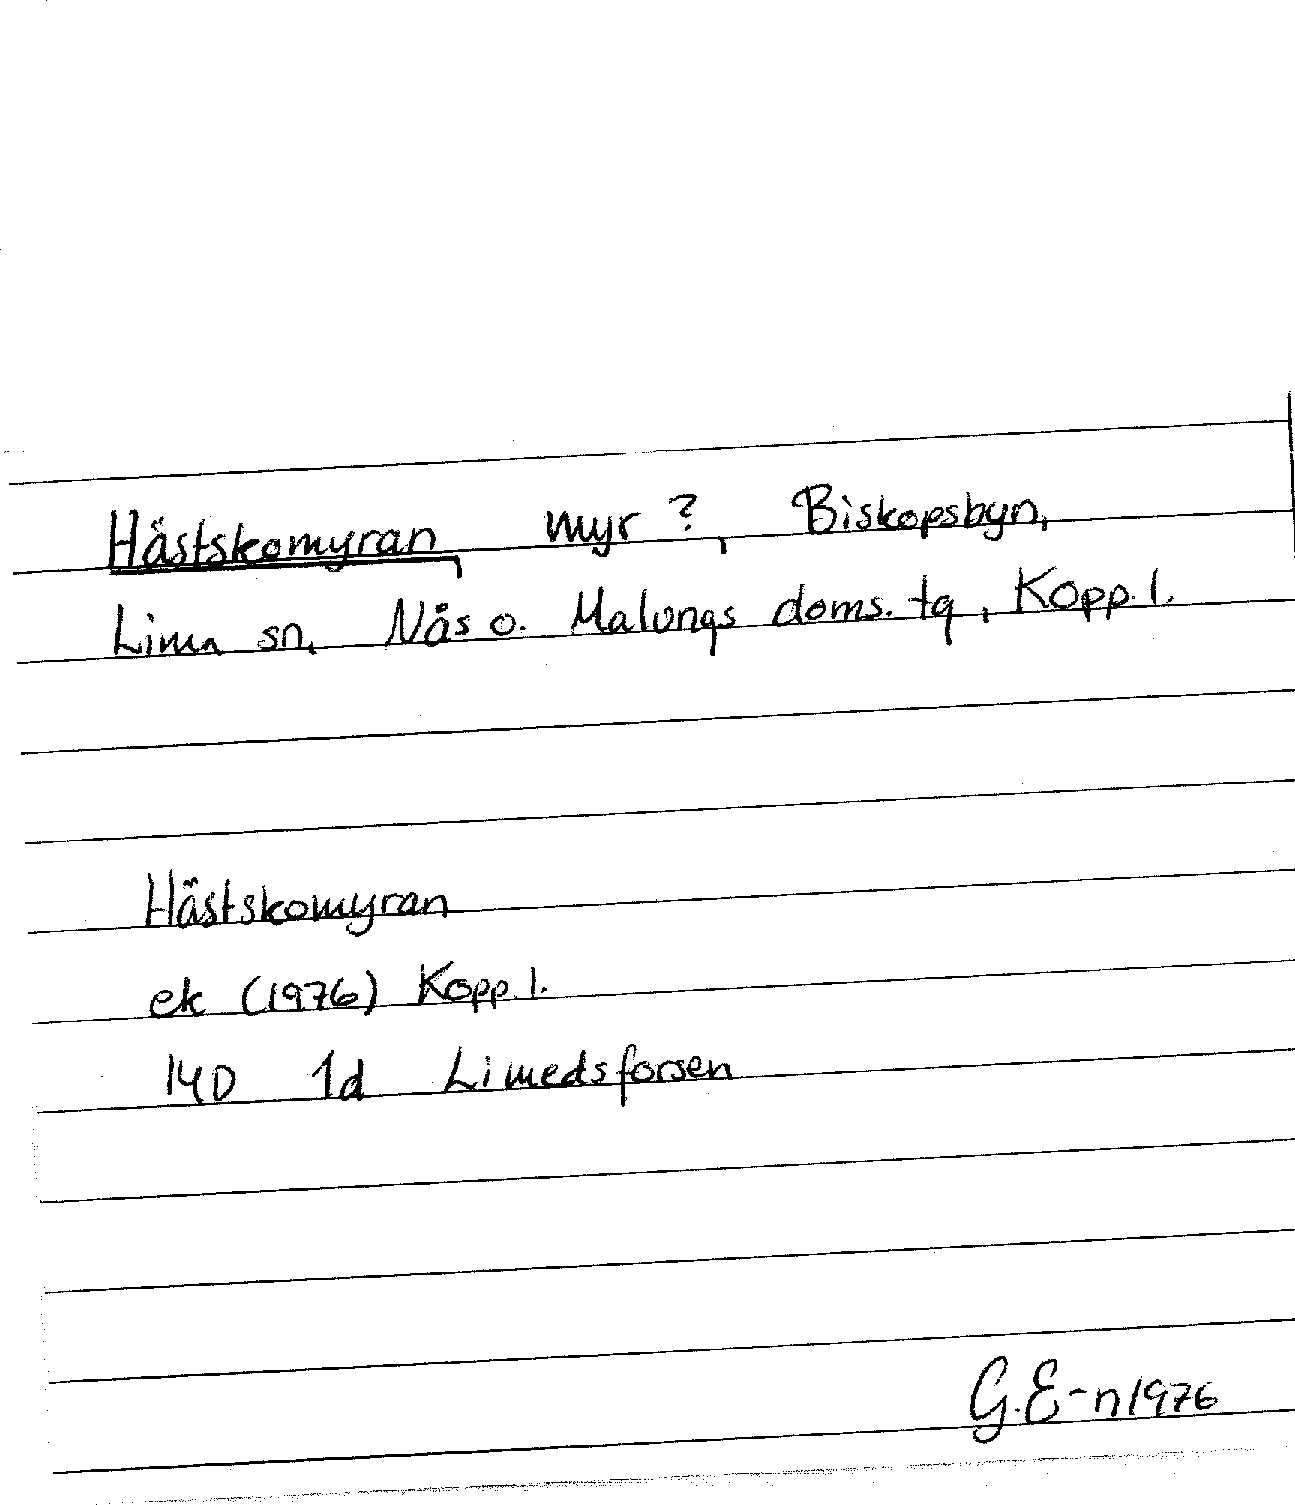 Hästskomyran, myr ?, Biskopsbyn,
Lima sn, Nås o. Malungs doms. tg, Kopp. l.
Hästskomyran
ek (1976) Kopp. l.
14D 1d Limedsforsen
G.E-n 1976